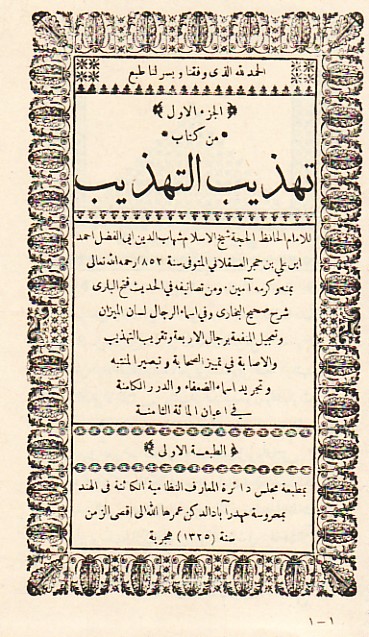 الحمد لله الذى وفقنا ويسر لنا طبع
الجزء الاول
من كتاب
تهذيب التهذيب
للامام الحافظ الحجة شيخ الاسلام شهاب الدين ابى الفضل احمد
ابن علي بن حجر العسقلاني المتوفى سنة ٨٥٢ رحمه الله تعالى
بمنه وكرمه آمين ٠ ومن تصانيفه في الحديث فتح البارى
شرح صحيح البخارى وفي اسماء الرجال لسان الميزان
وتعجيل المنفعة برجال الاربعة وتقريب التهذيب
والاصابة في تمييز الصحابة و تبصير المنتبه
وتجريد اسماء الضعفاء و الدرر الكامنة
في اعيان المائة الثامنة
الطبعة الاولى
بمطبعة مجلس دائرة المعارف النظامية الكائنة في الهند
بمحروسة حيدر اباد الدكن عمرها الله الى اقصى الزمن
سنة (١٣٢٥) هجرية
١ - ١